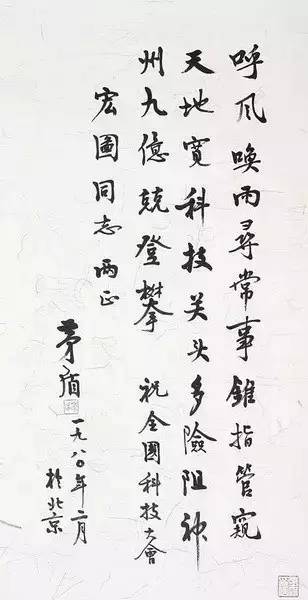 呼风唤雨寻常事錐指管窥
天地寛科技关头多險阻神
州九億兢登攀 祝全国科技大會
宏圖同志 两正
茅盾 一九八〇年二月
於北京